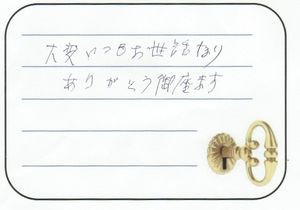 大変いつもお世話なり
ありがとう御座ます